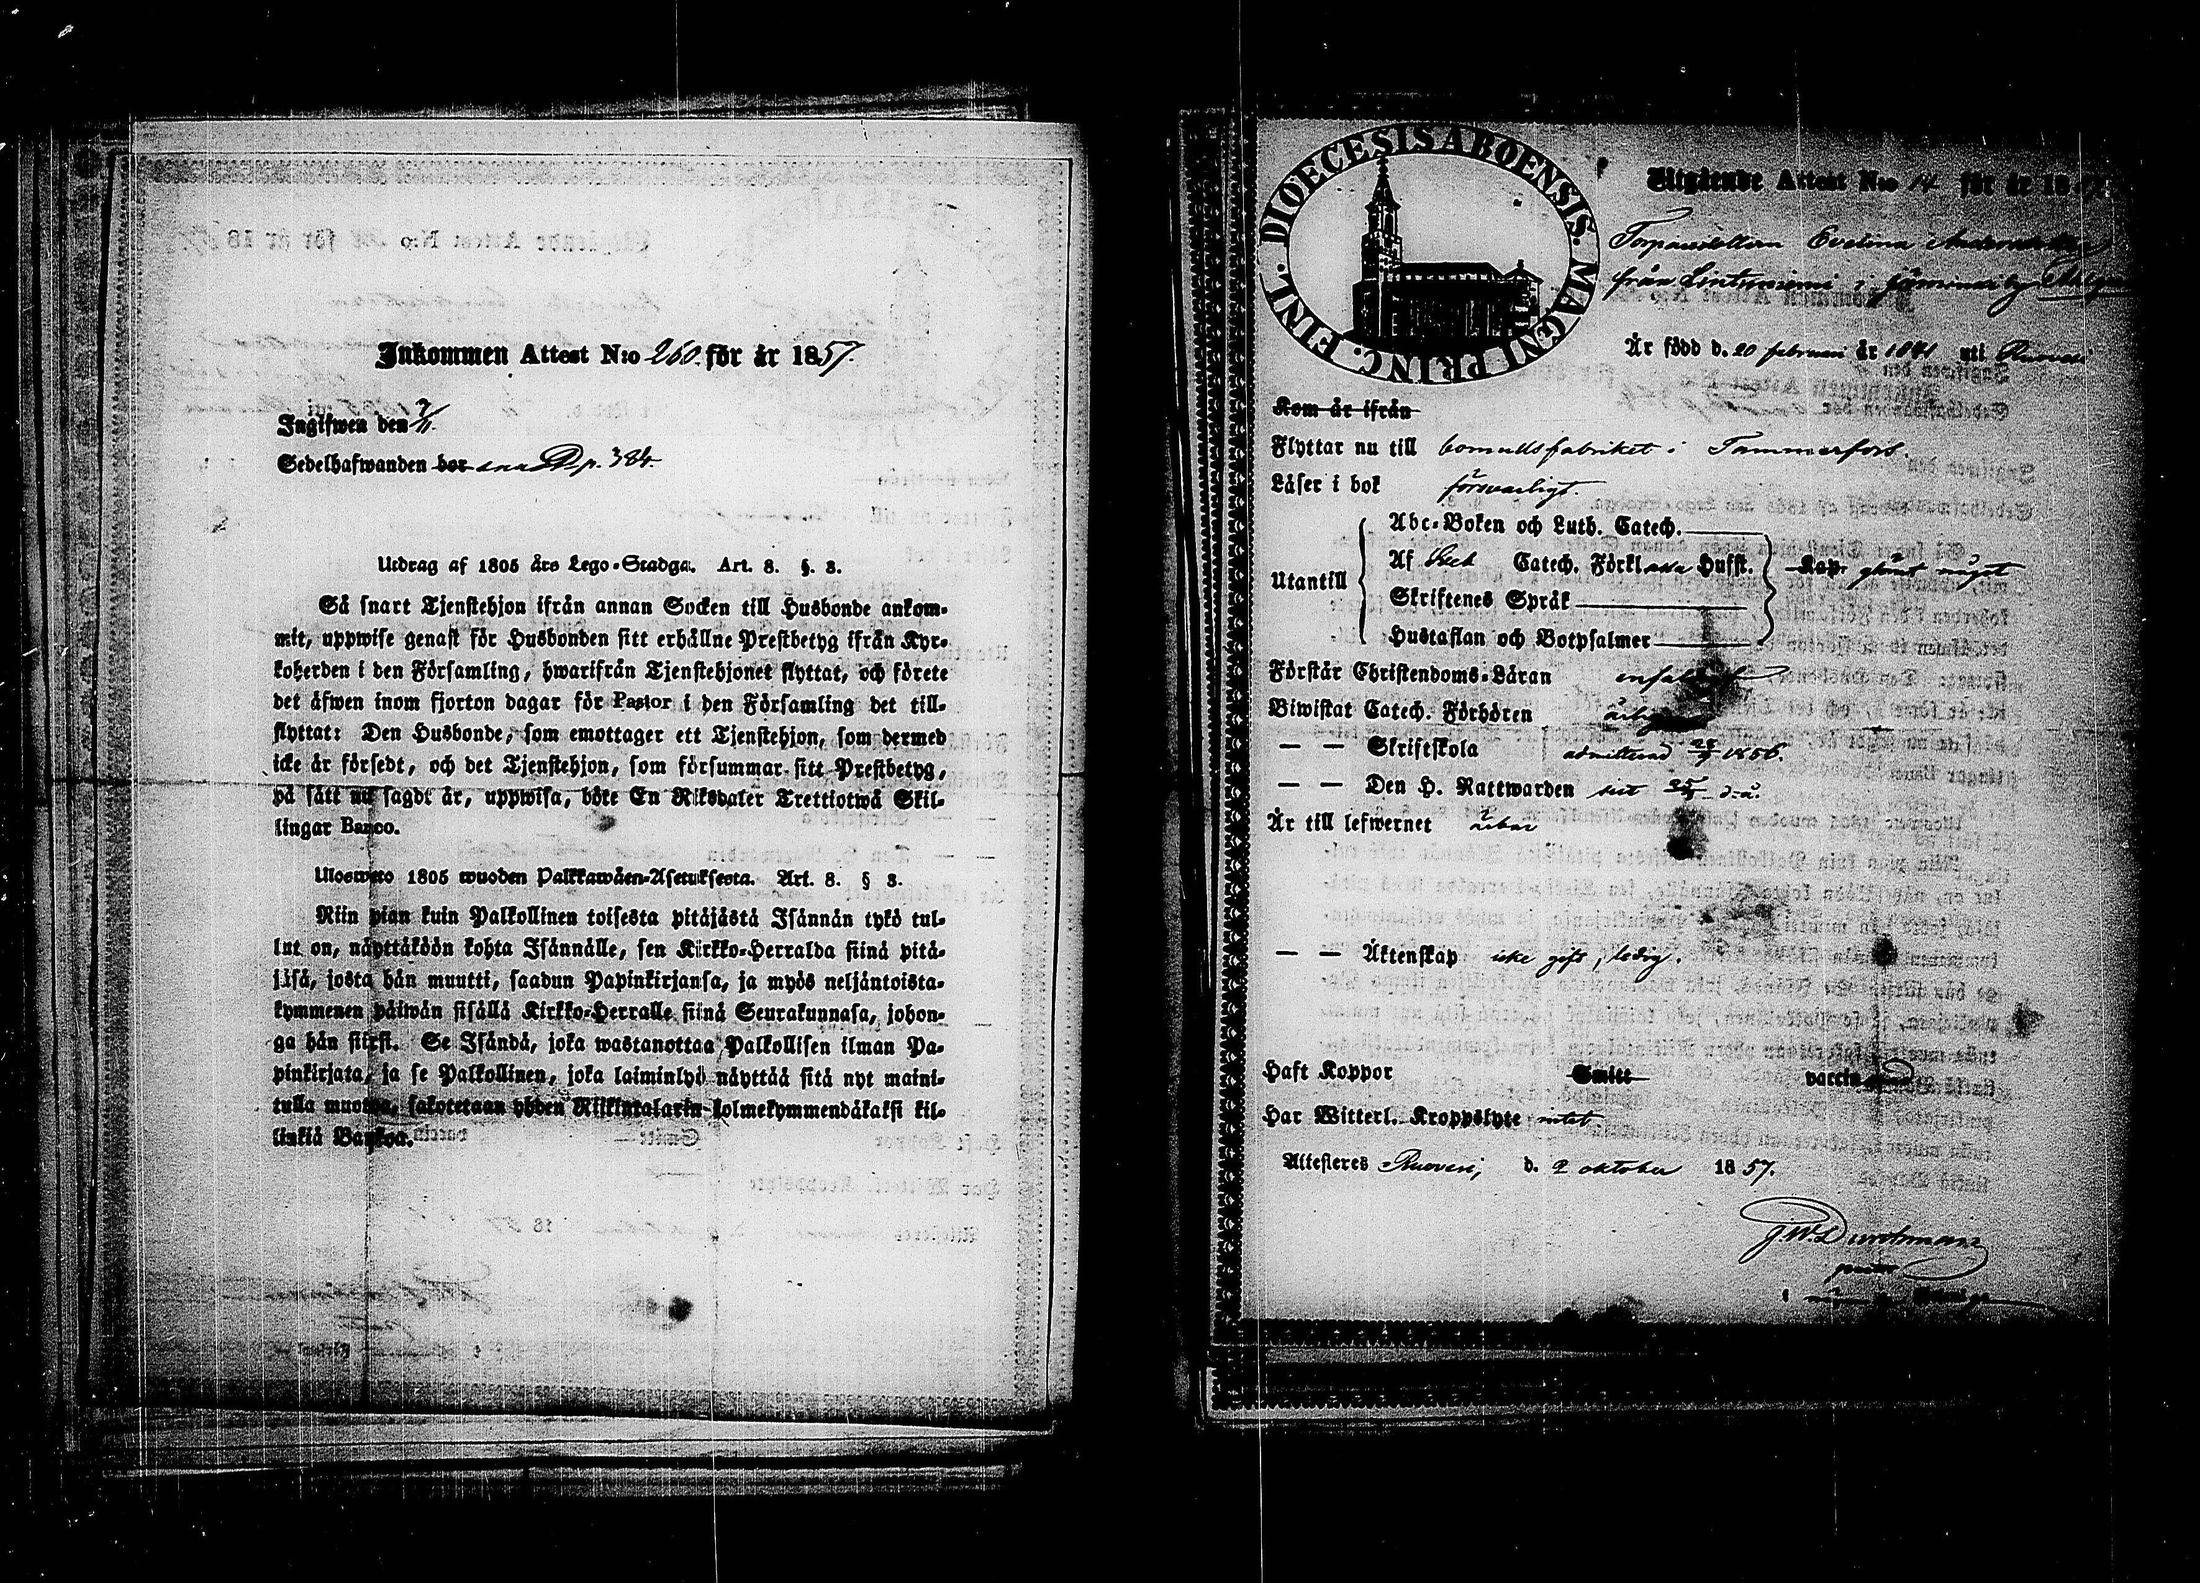 Inkommen Attest N:o 260 för år 1857.
Ingifwen den 7/11.
Sedelhafwanden bör p. 384.
Utdrag af 1805 års Lego-Stadga. Art. 8. §. 3.
Så snart Tjenstehjon ifrån annan Socken till Husbonde ankom-
mit, uppwise genast för Husbonden sitt erhållne Prestbetyg ifrån Kyr-
koherden i den Församling, hwarifrån Tjenstehjonet flyttat, och förete
det äfwen inom fjorton dagar för Pastor i den Församling det till-
flyttat: Den Husbonde, som emottager ett Tjenstehjon, som dermed
icke är försedt, och det Tjenstehjon, som försummar sitt Prestbetyg,
på sätt nu sagdt är, uppwisa, böte En Riksdaler Trettiotwå Skil-
lingar Banco.
Ulosweto 1805 wuoden Palkkawäen-Asetuksesta. Art. 8. § 3.
Niin pian kuin Palkollinen toisesta pitäjästä Isännän tykö tul-
lut on, näyttäköön kohta Isännälle, sen Kirkko-Herralda siinä pitä-
jäsä, josta hän muutti, saadun Papinkirjansa, ja myös neljäntoista-
kymmenen päiwän sisällä Kirkko-Herralle siinä Seurakunnasa, johon-
ga hän siirsi. Se Isändä, joka wastanottaa Palkollisen ilman Pa-
pinkirjata, ja se Palkollinen, joka laiminlyö näyttää sitä nyt maini-
tulla muotoa, sakotetaan yhden Riikintalarin kolmekymmendäkaksi kil-
linkiä Bankoa.
DIOECESIS ABOENSIS. MAGNI PRINC. FINL.
Utgående Attest N:o 14 för år 1857
Torpardottern Evelina
från Lintuniemi i by
Är född d. 20 februari år 1841 uti Ruovesi
Kom år ifrån
Flyttar nu till bomullsfabriket i Tammerfors.
Läser i bok försvarligt.
Abc-Boken och Luth. Catech.
Utantill
Af Catech. Förkl Husst. Kap.
Skriftenes Språk
Hustaflan och Botpsalmer
Förstår Christendoms-Läran enfaldigt
Biwistat Catech. Förhören årligen
— — Skriftskola admitterad 1856.
— — Den H. Nattwarden sist d. å.
Är till lefwernet ärbar
— — Äktenskap icke gift, ledig.
Haft Koppor Smitt vaccin
Har Witterl. Kroppslyte intet.
Attesteres Ruovesi, d. 2 oktober 1857.
J.W. Durchman
pastor